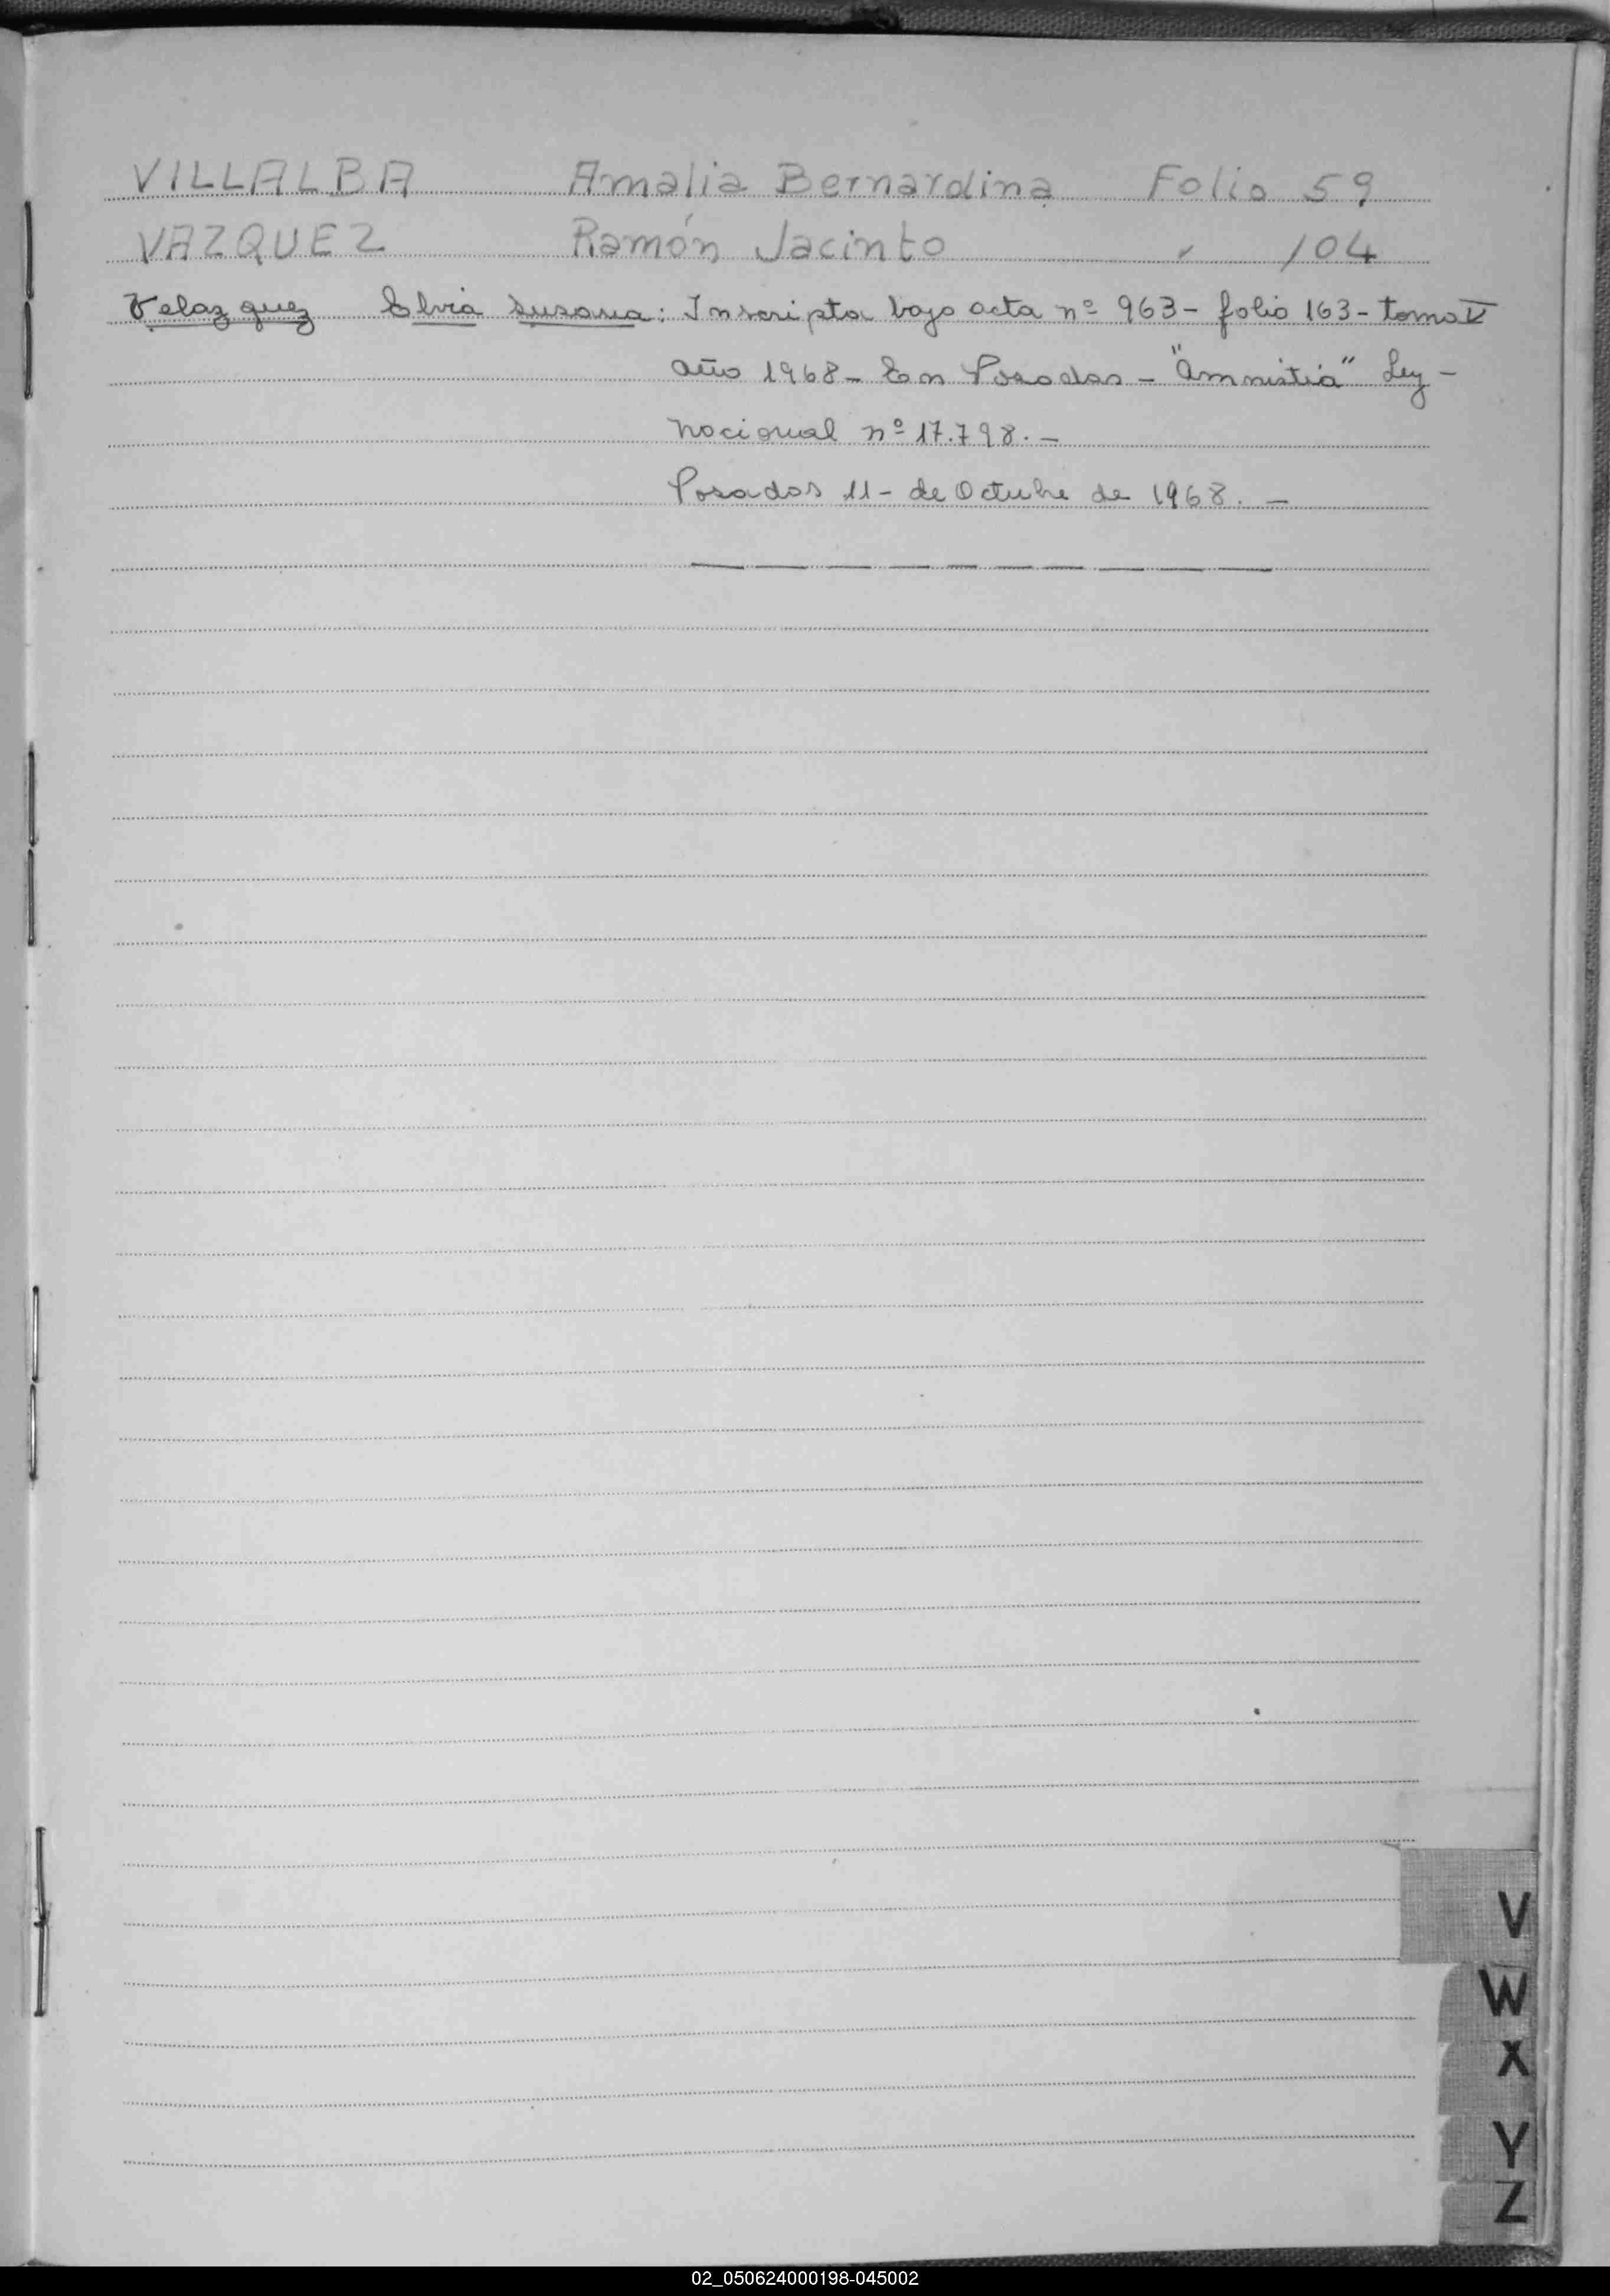 VILLALBA Amalia Bernardina Folio 59
VAZQUEZ Ramón Jacinto " 104
Velazquez Elvia Susana: Inscripta bajo acta nº 963- folio 163- tomo V
año 1968- En Posadas - "Amnistia" Ley -
nacional nº 17.798. -
Posadas 11- de Octubre de 1968. -
V
W
X
Y
Z
02_050624000198-045002